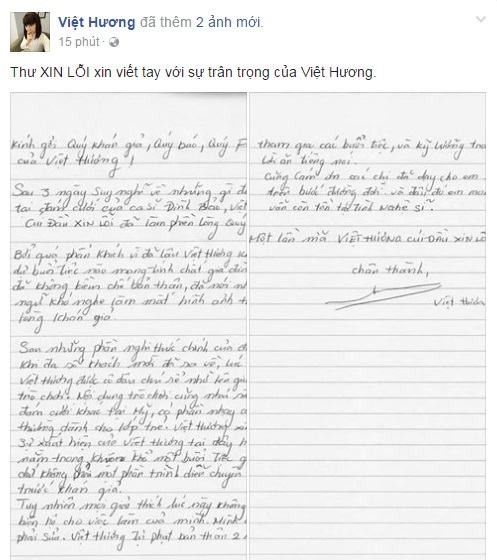 Việt Hương đã thêm 2 ảnh mới.
15 phút
Thư XIN LỖI xin viết tay với sự trân trọng của Việt Hương.
Kính gởi Quý khán giả, Quý báo, Quý F
của Việt Hương!
Sau 3 ngày suy nghĩ về những gì đ
tại đám cưới của ca sĩ Đinh Bảo, Việ
Cúi ĐẦU XIN LỖI đã làm phiền lòng Quý
Bởi quá phấn khích vì đã lâu Việt Hương k
dự buổi tiệc nào mang tính chất gia đìn
đã không kiềm chế bản thân, đã nói nh
ngữ khó nghe làm mất hình ảnh t
lòng khán giả.
Sau những phần nghi thức chính của đ
khi đa số khách mời đã ra về, lúc
Việt Hương được cô dâu chú rể nhờ lên giú
trò chơi. Nội dung trò chơi cũng như
đám cưới khác tại Mỹ, có phần nhạy
thường dành cho lớp trẻ. Việt Hương
Sự xuất hiện của Việt Hương tại đây
nằm trong khuôn khổ một buổi tiệc g
chứ không phải một phần trình diễn chuyên
trước khán giả.
Tuy nhiên mọi giải thích lúc này không
biện hộ cho việc làm của mình. Mình
phải sửa. Việt Hương tự phạt bản thân 2
tham gia các buổi tiệc, và kỹ lưỡng tron
lời ăn tiếng nói.
Cũng cám ơn các chị đã dạy cho em
trên bước đường đời và đâu đó em
vẫn còn tồn tại tình nghệ sĩ.
Một lần nữa VIỆT HƯƠNG CÚI ĐẦU XIN LỖ
chân thành,
Việt Hươn